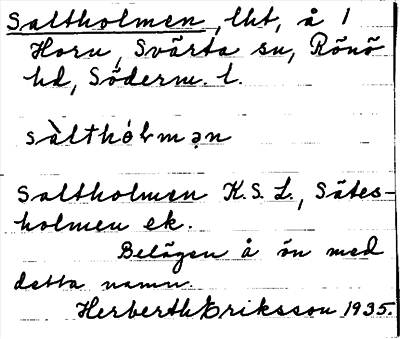 Saltholmen, lht, å 1
Horn, Svärta sn, Rönö
hd, Söderm. l.
sàlthólmən
Saltholmen K.S. L., Sätes-
holmen ek.
Belägen å ön med
detta namn.
Herberth Eriksson 1935.